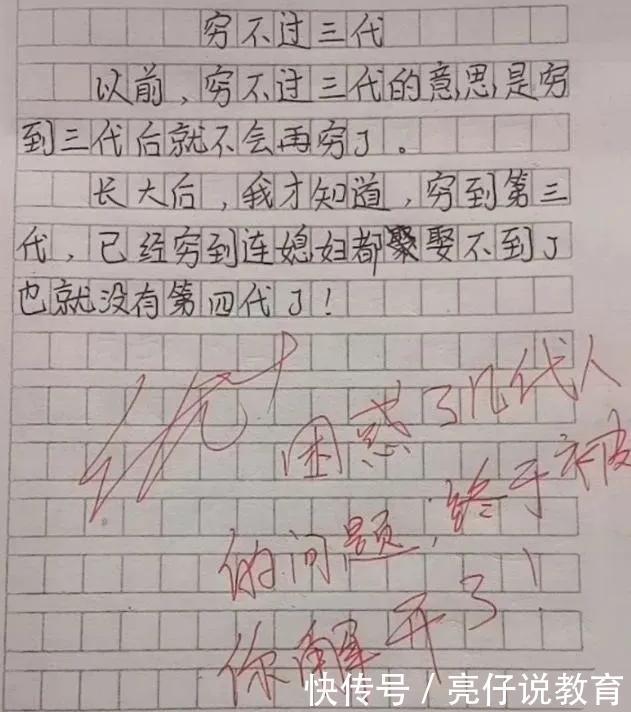 穷不过三代
以前，穷不过三代的意思是穷
到三代后就不会再穷了。
长大后，我才知道，穷到第三
代，已经穷到连媳妇都娶不到了
也就没有第四代了！
优+
困惑了几代人
的问题，终于被
你解开了！
快传号/亮仔说教育